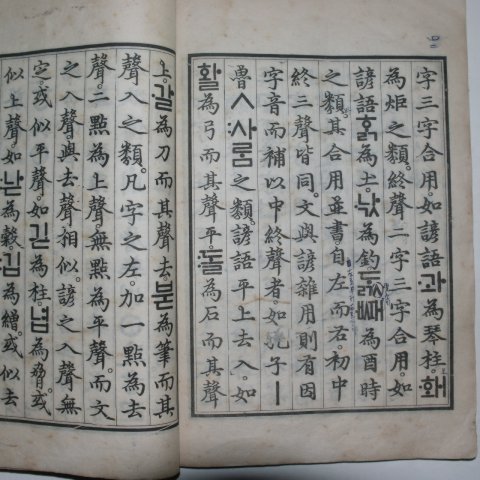 字三字合用。如諺語과為琴柱。홰
為炬之類。終聲二字三字合用。如
諺語ᄒᆞᆰ為土。낛為釣。ᄃᆞᇌᄣᅢ為酉時
之類。其合用並書自左而右。初中
終三聲皆同。文與諺雜用則有因
字音而補以中終聲者。如孔子ㅣ
魯ㅅ사ᄅᆞᆷ之類。諺語平上去入。如
활為弓而其聲平。돌為石而其聲
上。갈為刀而其聲去。붇為筆而其
聲入之類。凡字之左。加一點為去
聲。二點為上聲。無點為平聲。而文
之入聲與去聲相似。諺之入聲無
定。或似平聲。如긷為柱。녑為脅。或
似上聲。如낟為穀。깁為繒。或似去